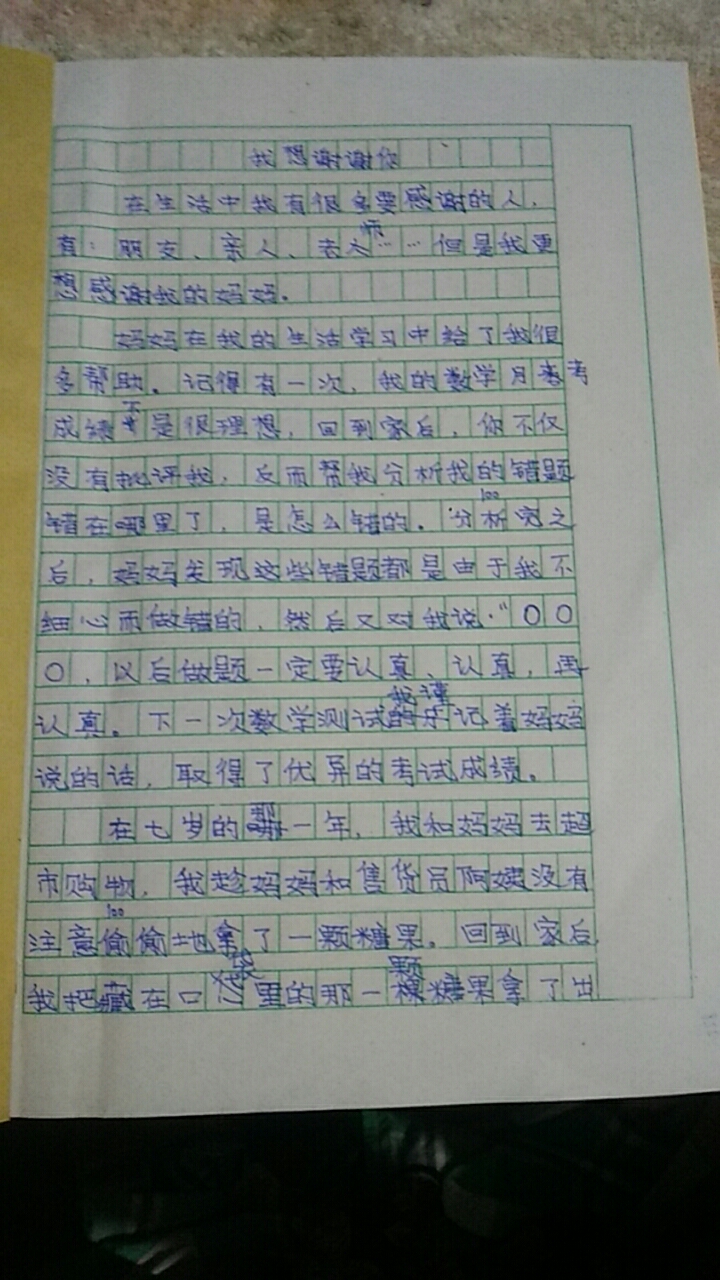 我想谢谢你
在生活中我有很多要感谢的人，
有：朋友、亲人、老师……但是我更
想感谢我的妈妈。
妈妈在我的生活学习中给了我很
多帮助。记得有一次，我的数学月考
成绩不是很理想，回到家后，你不仅
没有批评我，反而帮我分析我的错题
错在哪里了，是怎么错的。分析完之
后，妈妈发现这些错题都是由于我不
细心而做错的，然后又对我说："〇〇
〇，以后做题一定要认真、认真，再
认真。下一次数学测试我谨记着妈妈
说的话，取得了优异的考试成绩。
在七岁的那一年，我和妈妈去超
市购物，我趁妈妈和售货员阿姨没有
注意偷偷地拿了一颗糖果。回到家后
我把藏在口袋里的那一颗糖果拿了出
100
100